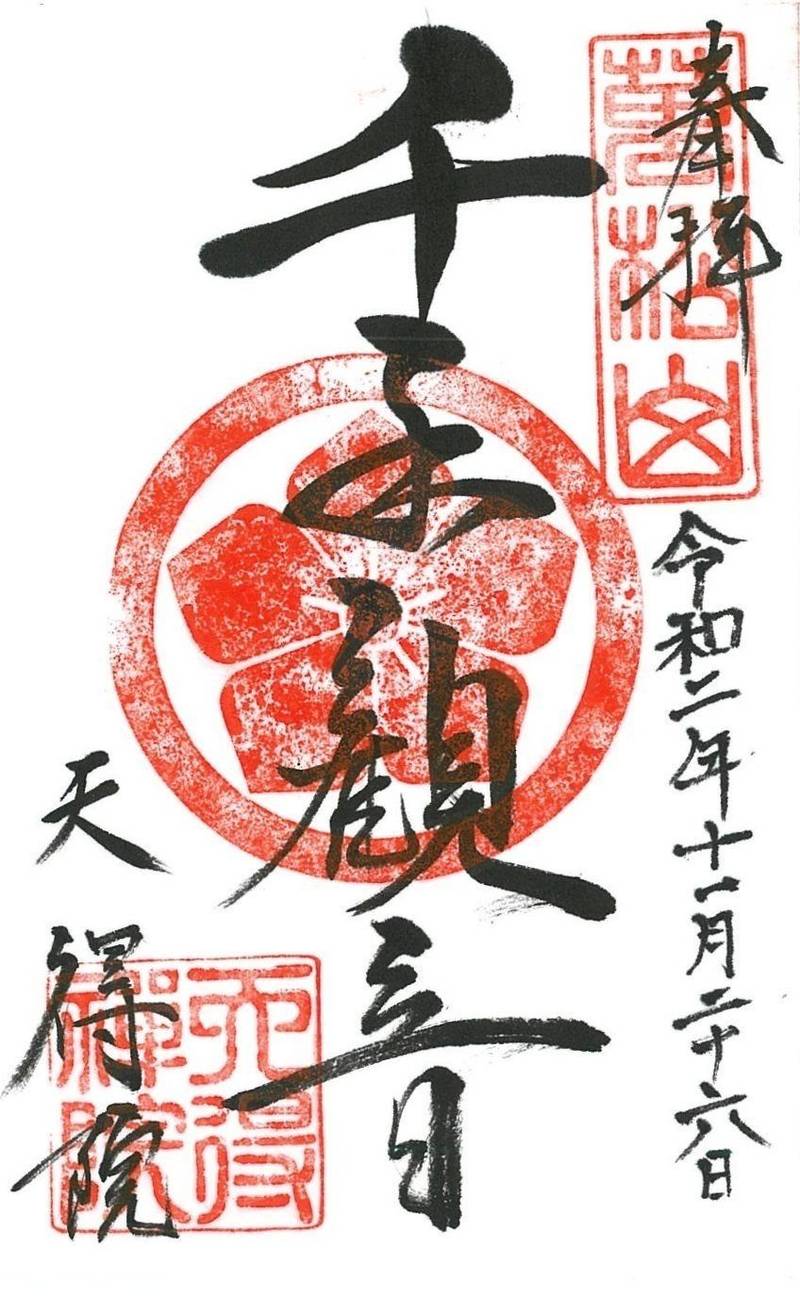 奉拝
萬松山
令和二年十一月二十六日
千手觀音
天得院
天得
禪院